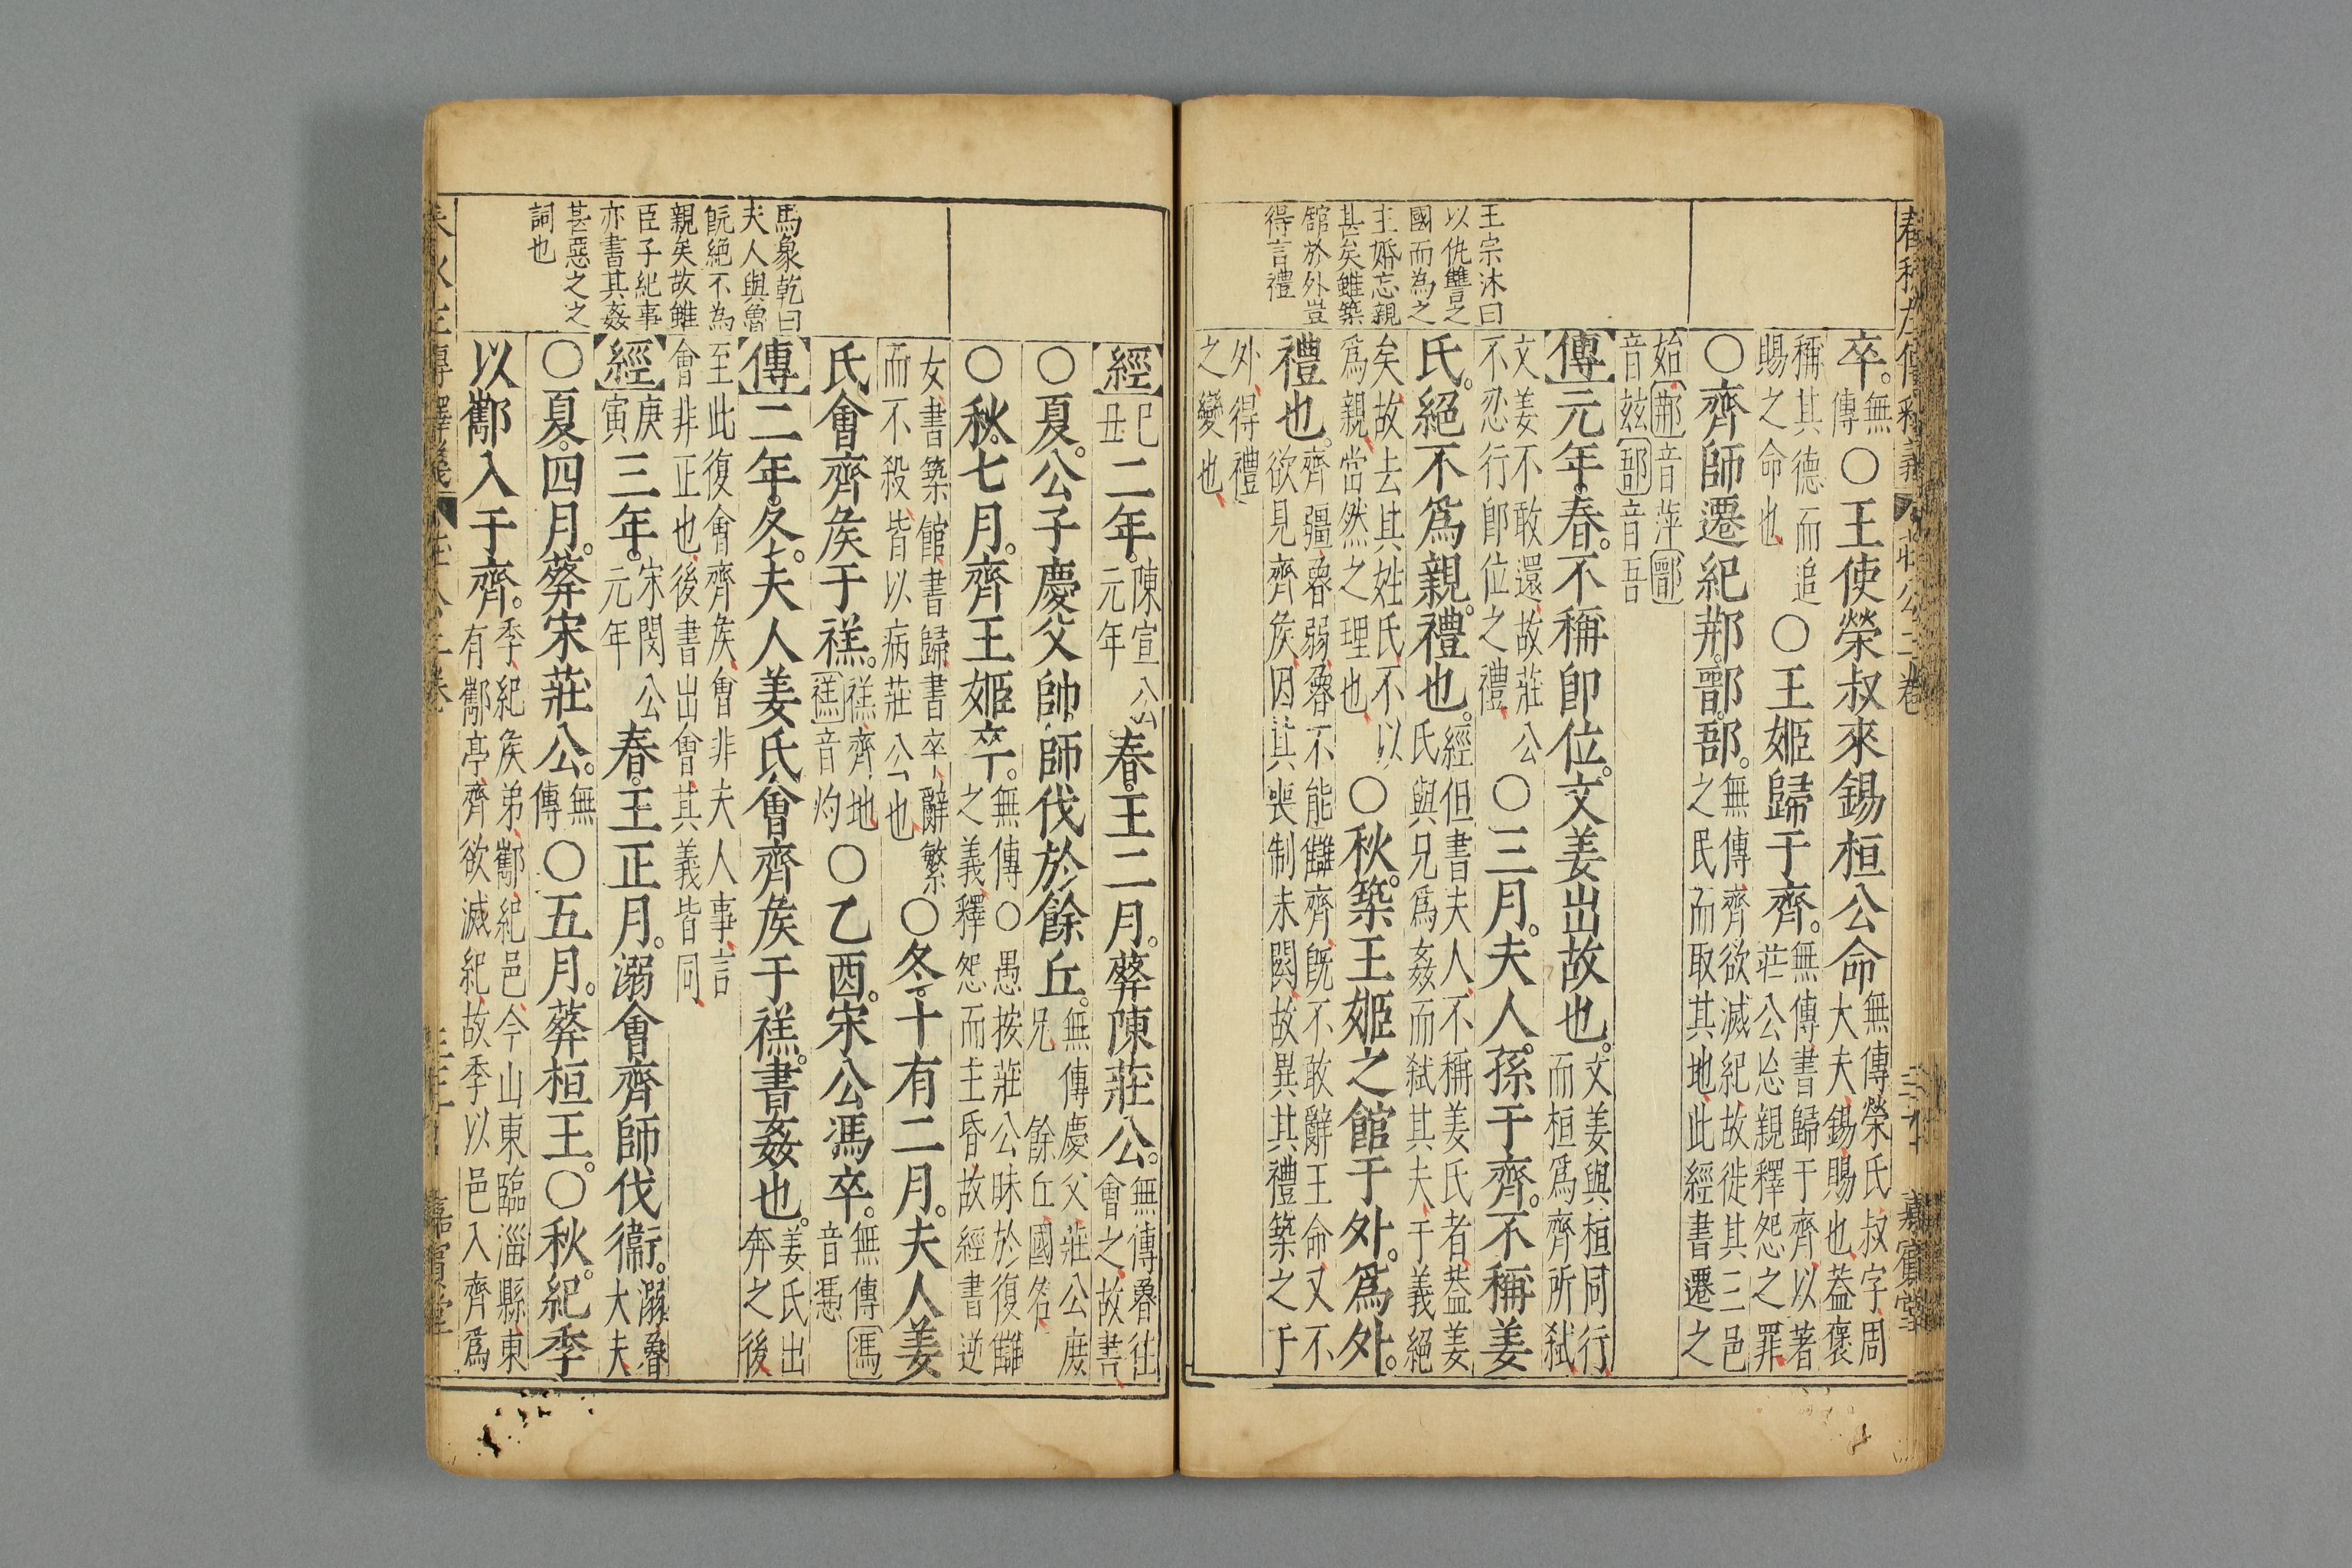 王宗沐曰
以仇讐之
國而為之
主婚忘親
甚矣雖築
館於外豈
得言禮
卒。無傳○王使榮叔來錫桓公命無傳榮氏叔字周大夫錫賜也葢褒
稱其德而追賜之命也○王姬歸于齊。無傳書歸于齊以著莊公忘親釋怨之罪
○齊師遷紀郱鄑郚。無傳齊欲滅紀故徙其三邑之民而取其地此經書遷之
始郱音萍鄑音玆郚音吾
傳元年。春。不稱卽位。文姜出故也。文姜與桓同行而桓爲齊所弑
文姜不敢還故莊公不忍行卽位之禮○三月。夫人孫于齊。不稱姜
氏。絕不爲親。禮也。經但書夫人不稱姜氏者葢姜氏與兄爲姦而弑其夫于義絕
矣故去其姓氏不以爲親當然之理也○秋。築王姬之館于外。爲外。
禮也。齊疆魯弱魯不能讎齊旣不敢辭王命又不欲見齊矦因其喪制未闋故異其禮築之于
外得禮之變也
春秋左傳釋義 莊公二卷 嘉賓堂
馬象乾曰
夫人與魯
旣絕不為
親矣故雖
臣子紀事
亦書其姦
甚惡之之
詞也
經己丑二年。陳宣公元年春。王二月。葬陳莊公。無傳魯往會之故書
○夏。公子慶父帥師伐於餘丘。無傳慶父莊公庶兄 餘丘國名
○秋。七月。齊王姬卒。無傳○愚按莊公昧於復讎之義釋怨而主昏故經書逆
女書築館書歸書卒辭繁而不殺皆以病莊公也○冬。十有二月。夫人姜
氏會齊矦于禚。禚齊地禚音灼○乙酉。宋公馮卒。無傳馮音憑
傳二年。冬。夫人姜氏會齊矦于禚。書姦也。姜氏出奔之後
至此復會齊矦會非夫人事言會非正也後書出會其義皆同
經庚寅三年。宋閔公元年春。王正月。溺會齊師伐衞。溺魯大夫
○夏。四月。葬宋莊公。無傳○五月。葬桓王。○秋。紀季
以酅入于齊。季紀矦弟酅紀邑今山東臨淄縣東有酅亭齊欲滅紀故季以邑入齊爲